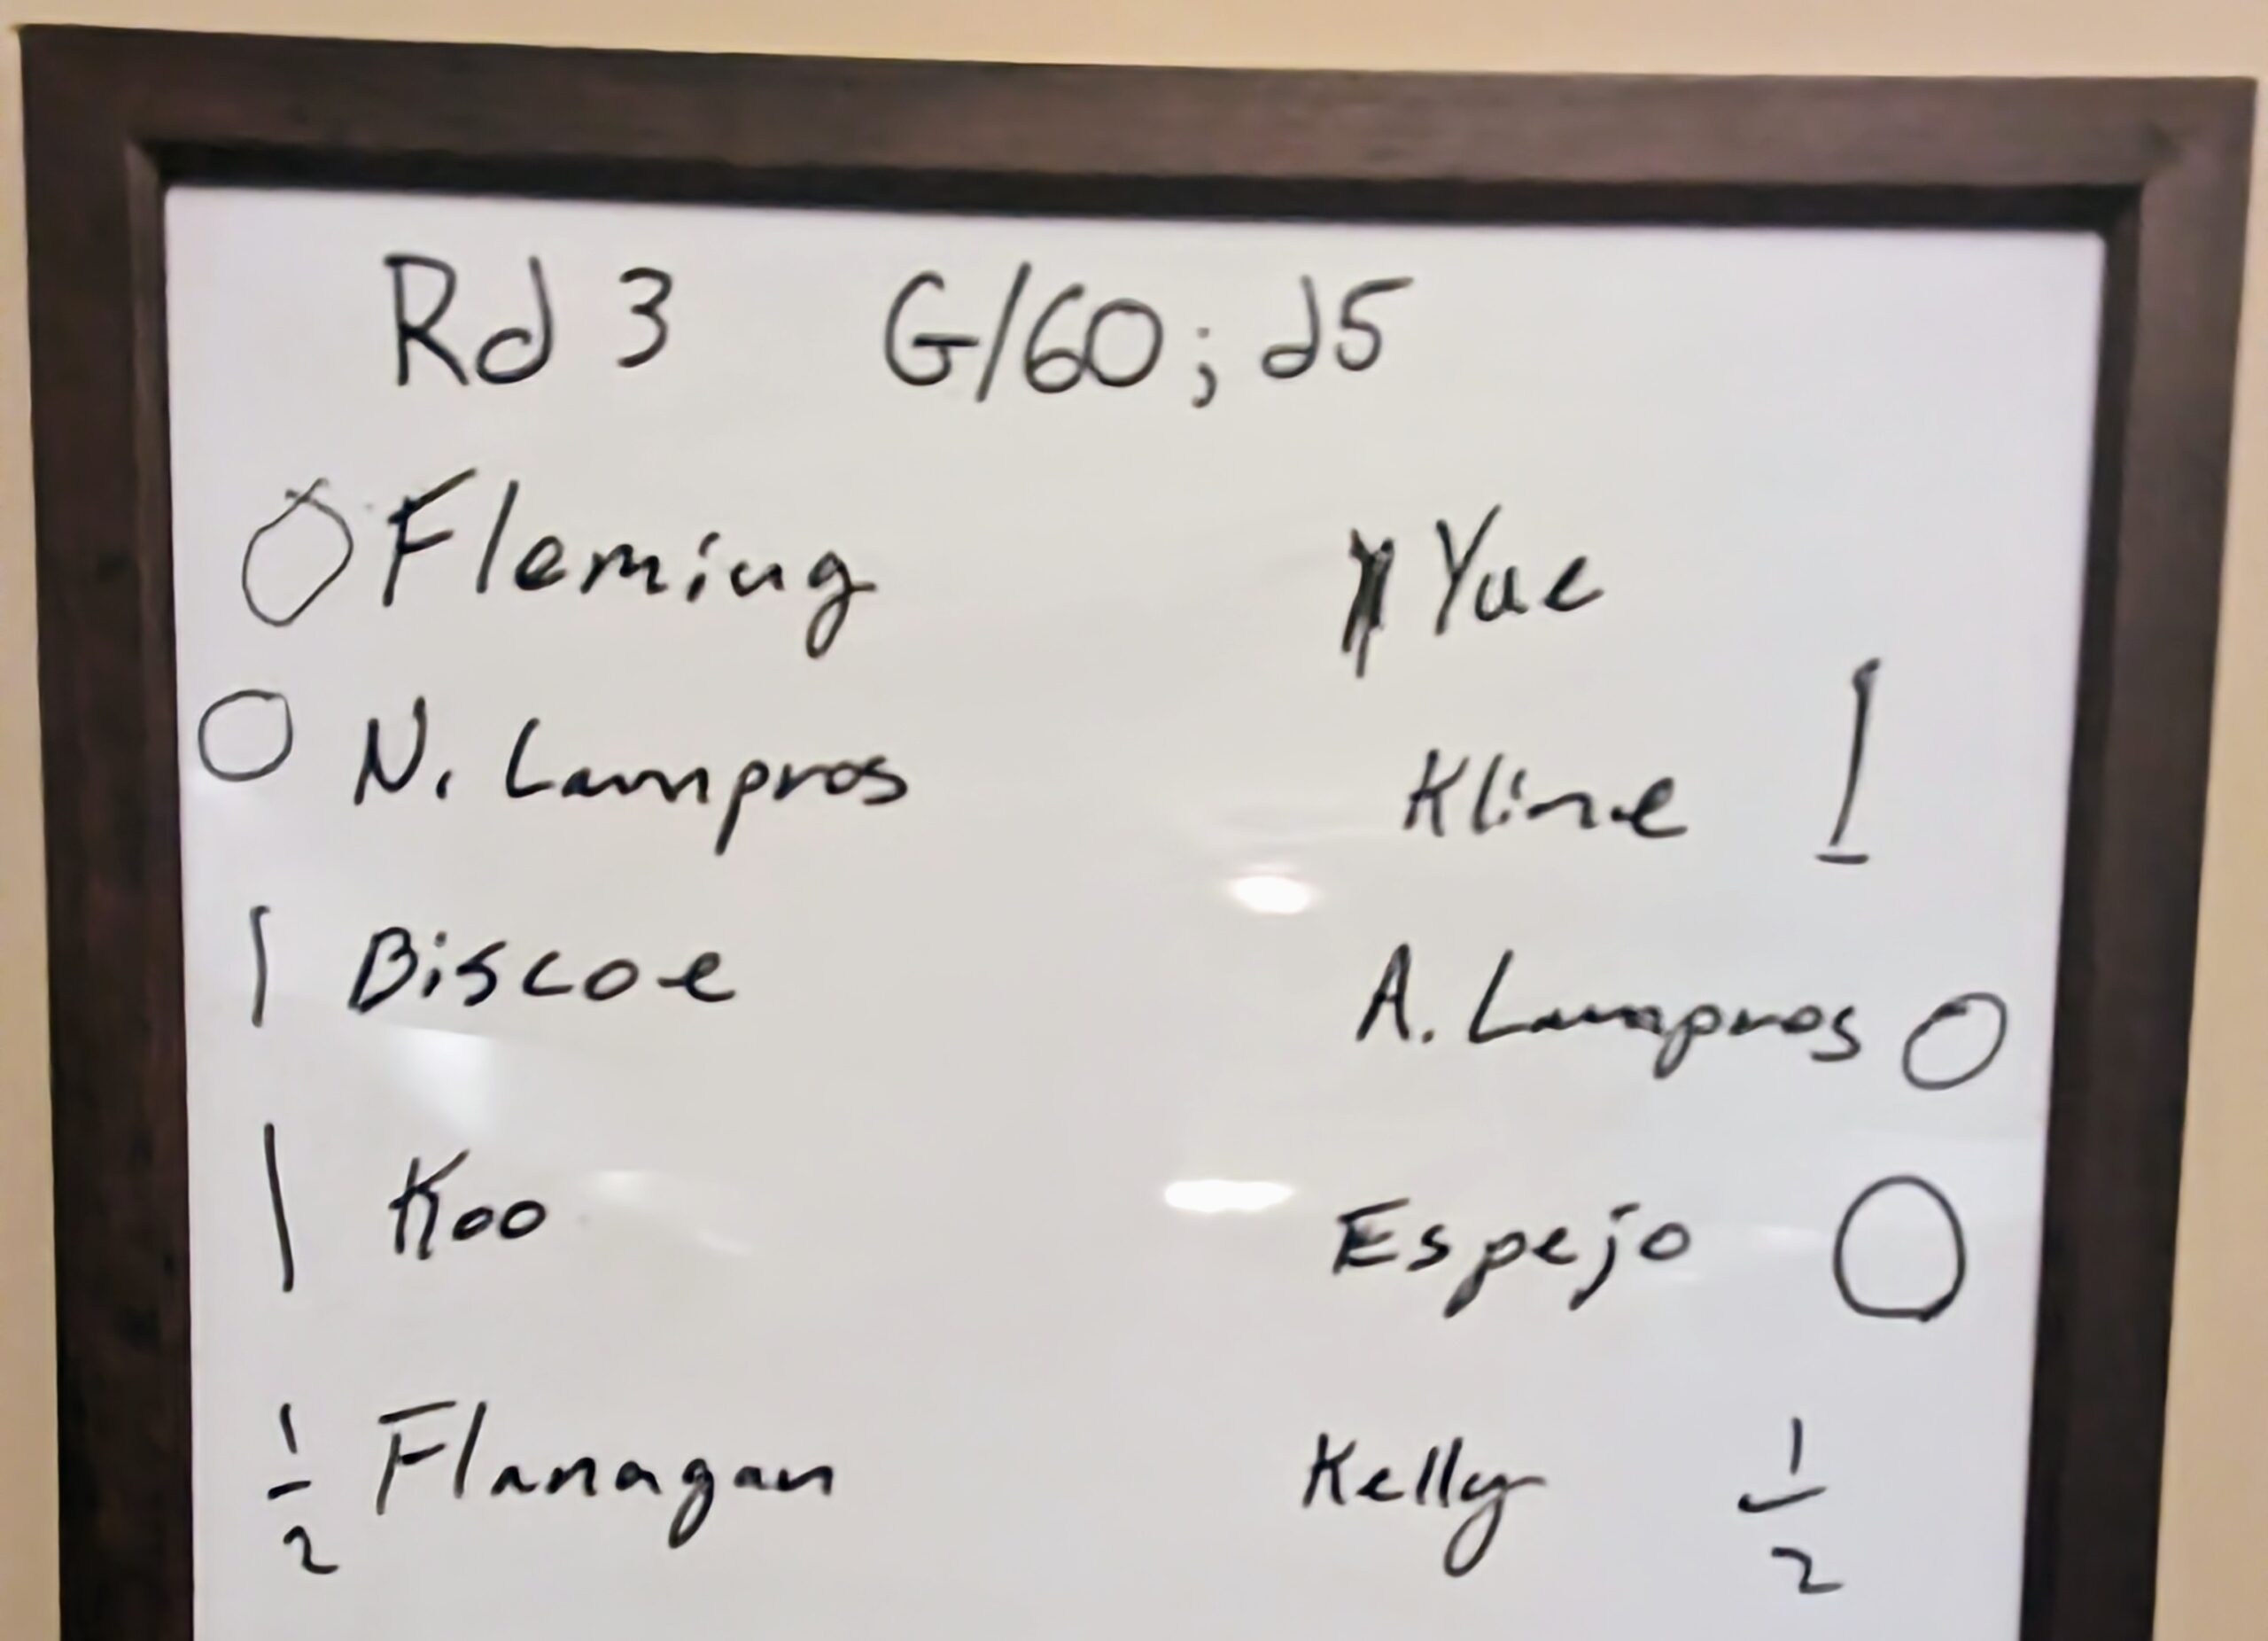 Rd 3 G/60; d5
0 Fleming 1 Yue
0 N. Lampros Kline 1
1 Biscoe A. Lampros 0
1 Koo Espejo 0
1/2 Flanagan Kelly 1/2